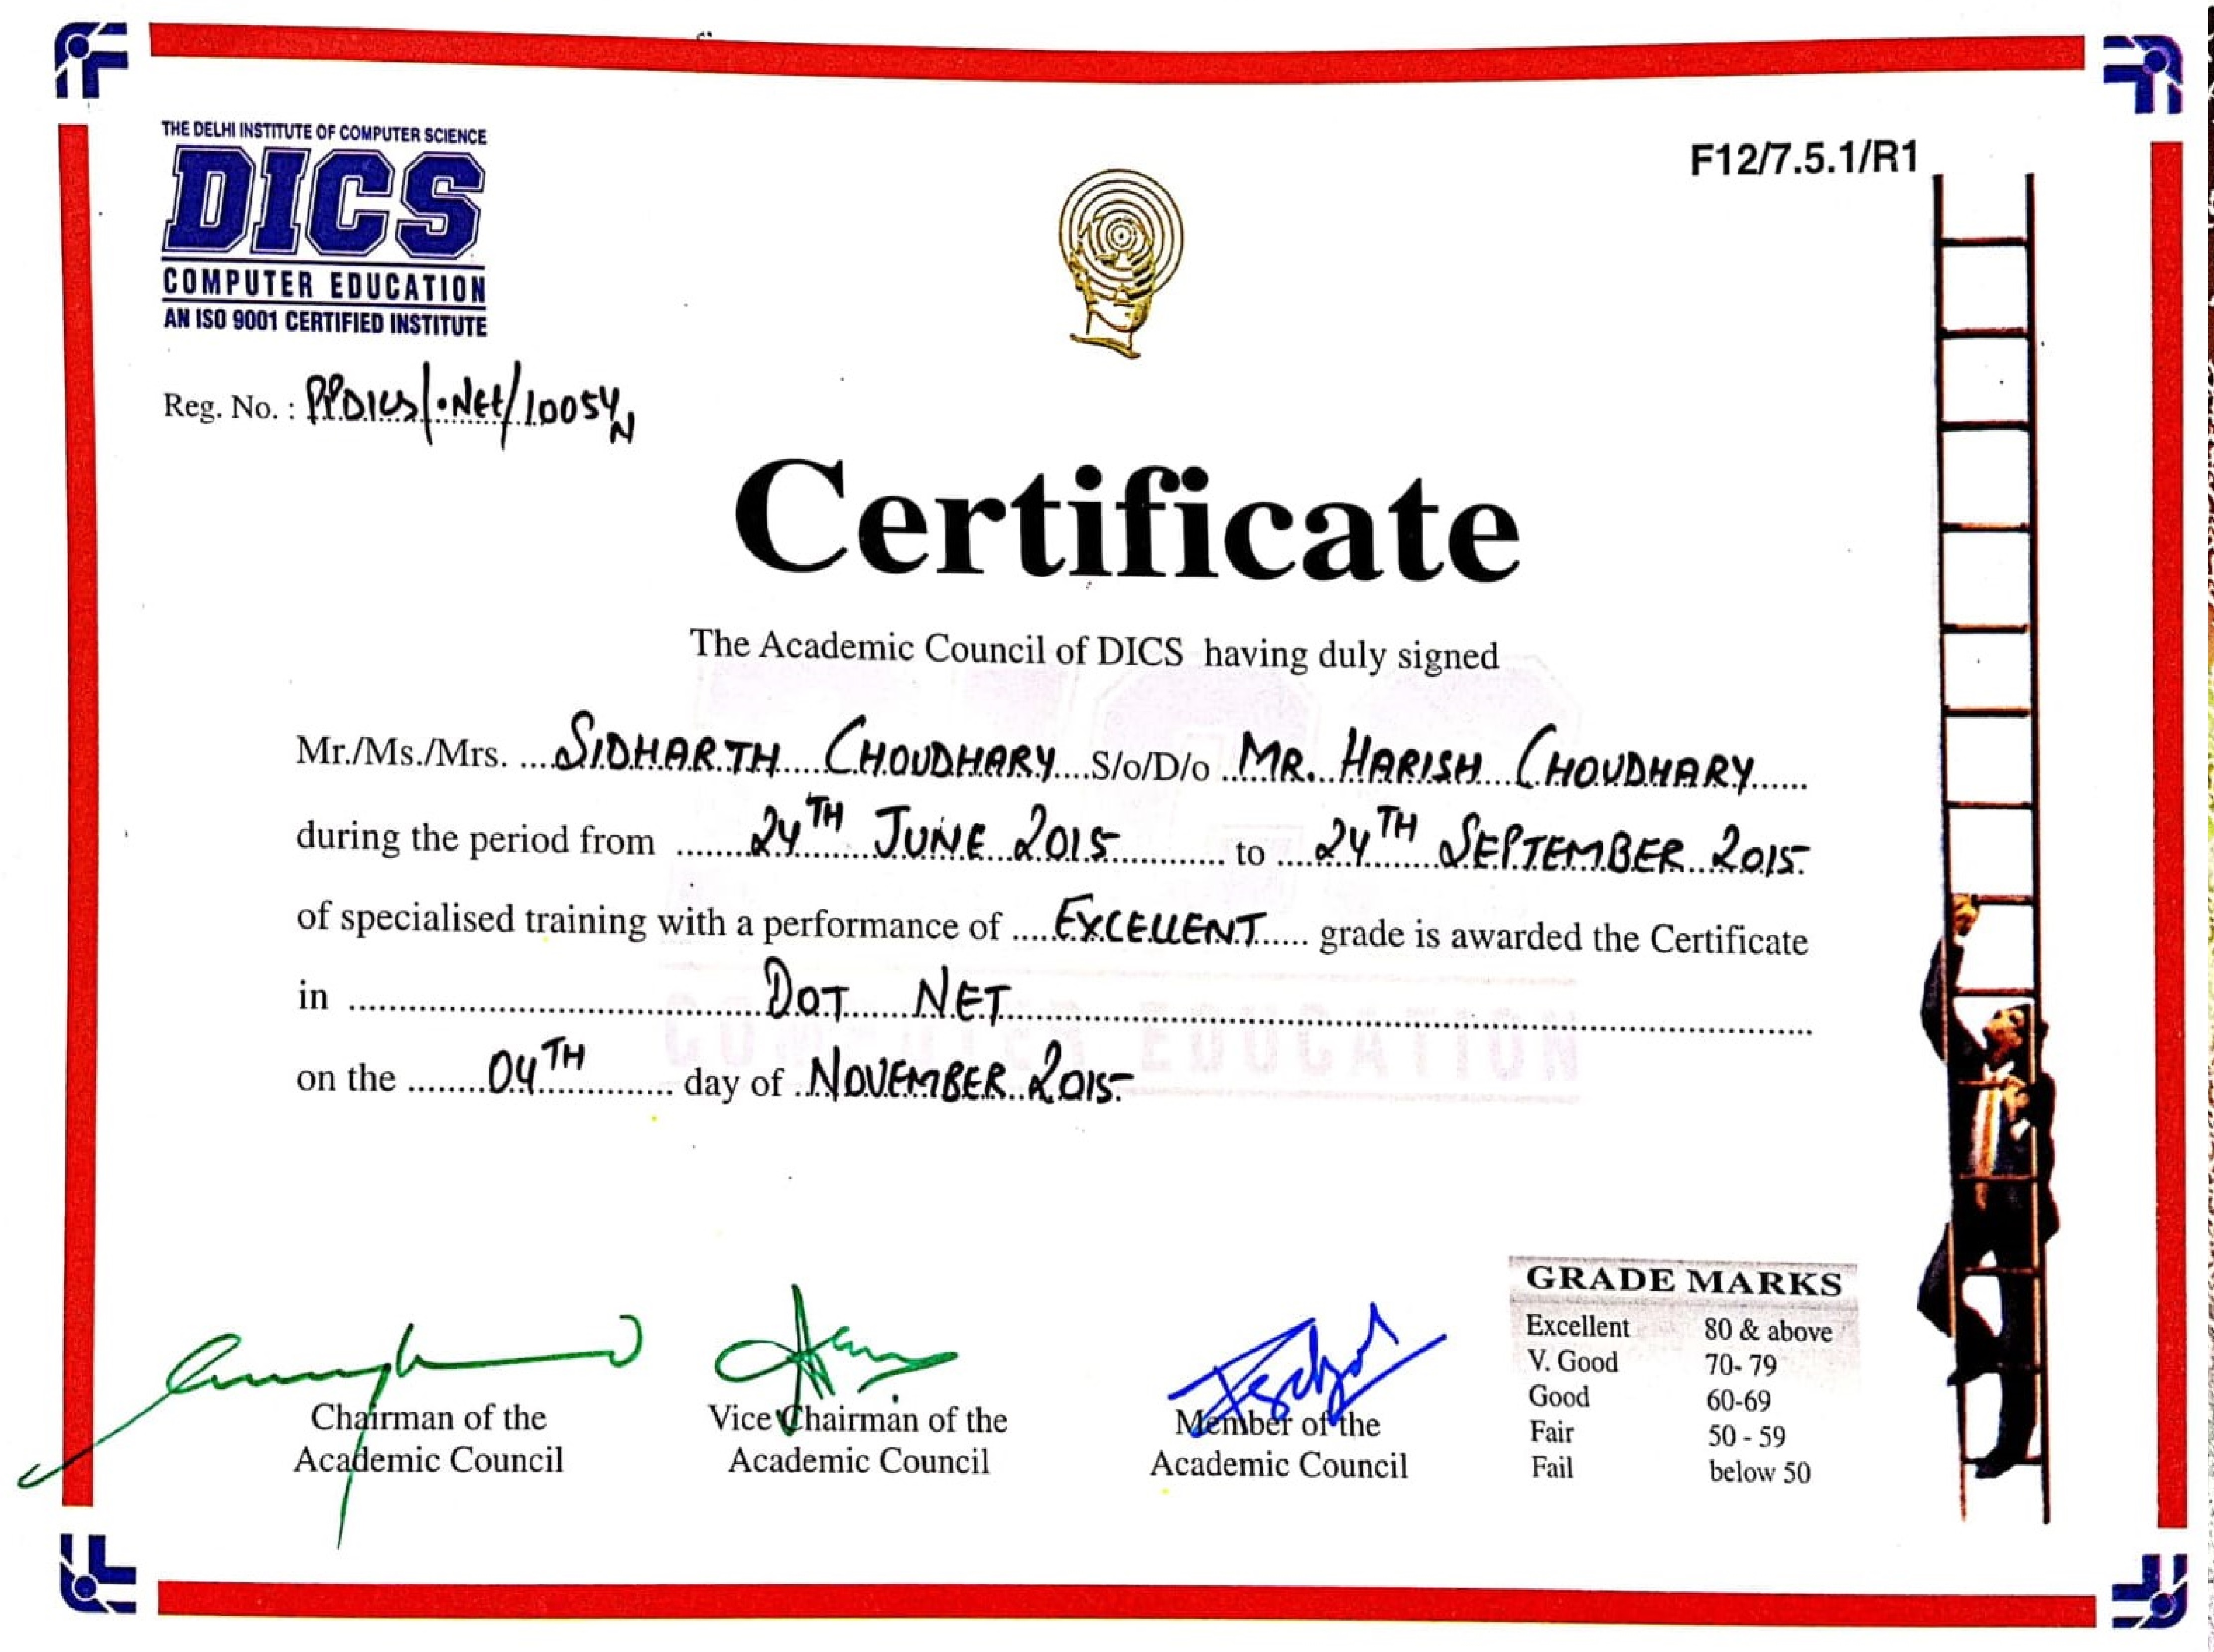 THE DELHI INSTITUTE OF COMPUTER SCIENCE
DICS
COMPUTER EDUCATION
AN ISO 9001 CERTIFIED INSTITUTE
F12/7.5.1/R1
Reg. No. : PPDICS/.Net/10054N
Certificate
The Academic Council of DICS having duly signed
Mr./Ms./Mrs. ....SIDHARTH CHOUDHARY....S/o/D/o..MR. HARISH CHOUDHARY......
during the period from ........24TH JUNE 2015............ to ....24TH SEPTEMBER 2015.
of specialised training with a performance of ....EXCELLENT...... grade is awarded the Certificate
in ........DOT NET........
on the ........04TH............ day of ..NOVEMBER 2015.
Chairman of the
Academic Council
Vice Chairman of the
Academic Council
Member of the
Academic Council
GRADE MARKS
Excellent 80 & above
V. Good 70- 79
Good 60-69
Fair 50 - 59
Fail below 50